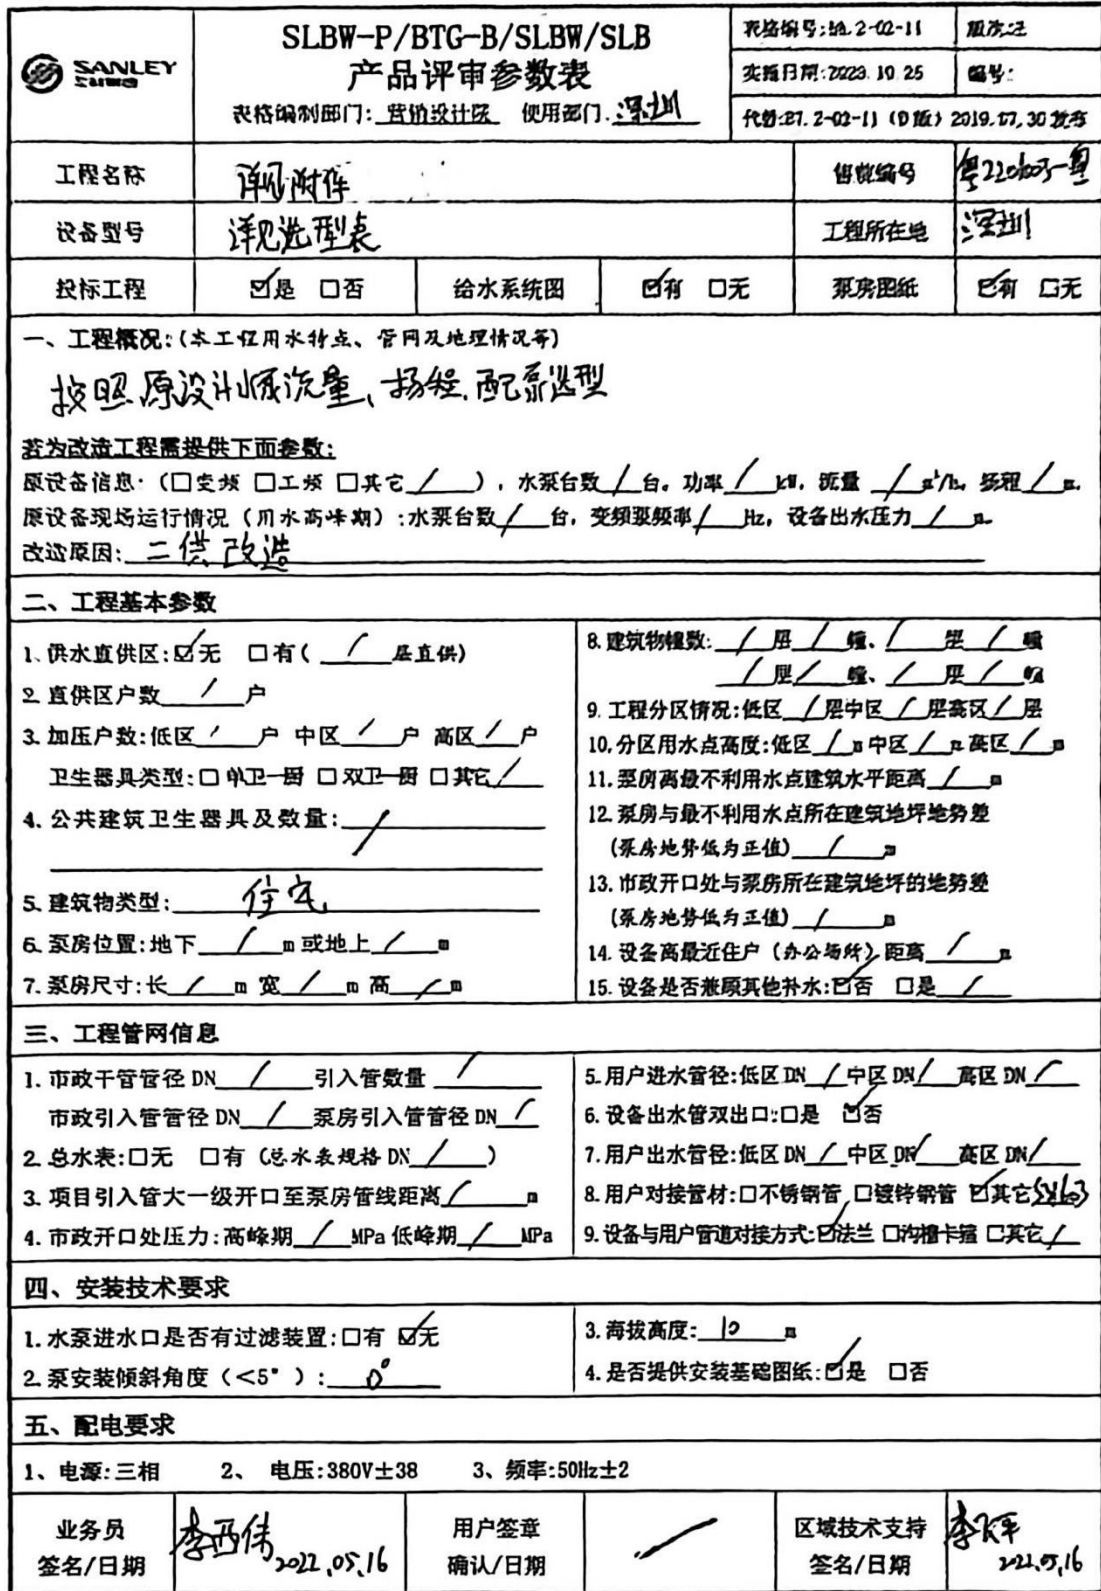 SANLEY
SLBW-P/BTG-B/SLBW/SLB
产品评审参数表
表格编制部门: 营销设计院 使用部门. 深圳
表格编号: 2-02-11
版次:
实施日期:2023.10.25
编号:
代替: 2-02-11 (D版) 2019.07.30发布
工程名称 详见附件 售前编号
设备型号 详见选型表 工程所在地 深圳
投标工程 ☑是 □否 给水系统图 ☑有 □无 泵房图纸 ☑有 □无
一、工程概况:(本工程用水特点、管网及地理情况等)
按照原设计 流量、扬程.配泵选型
若为改造工程需提供下面参数:
原设备信息:(□变频 □工频 □其它 / ),水泵台数 / 台.功率 / kW,流量 / m³/h.扬程 / m.
原设备现场运行情况(用水高峰期):水泵台数 / 台,变频泵频率 / Hz,设备出水压力 / m.
改造原因: 二供改造
二、工程基本参数
1.供水直供区:☑无 □有( / 层直供)
2.直供区户数 / 户
3.加压户数:低区 / 户 中区 / 户 高区 / 户
卫生器具类型:□单卫一厨 □双卫一厨 □其它 /
4.公共建筑卫生器具及数量: /
5.建筑物类型: 住宅
6.泵房位置:地下 / m或地上 / m
7.泵房尺寸:长 / m 宽 / m 高 / m
8.建筑物幢数: / 层 / 幢、 / 层 / 幢
/ 层 / 幢、 / 层 / 幢
9.工程分区情况:低区 / 层中区 / 层高区 / 层
10.分区用水点高度:低区 / m中区 / m高区 / m
11.泵房离最不利用水点建筑水平距离 / m
12.泵房与最不利用水点所在建筑地坪地势差
(泵房地势低为正值) / m
13.市政开口处与泵房所在建筑地坪的地势差
(泵房地势低为正值) / m
14.设备离最近住户(办公场所)距离 / m
15.设备是否兼顾其他补水:☑否 □是 /
三、工程管网信息
1.市政干管管径DN / 引入管数量 /
市政引入管管径DN / 泵房引入管管径DN /
2.总水表:□无 □有(总水表规格DN / )
3.项目引入管大一级开口至泵房管线距离 / m
4.市政开口处压力:高峰期 / MPa低峰期 / MPa
5.用户进水管径:低区DN / 中区DN / 高区DN /
6.设备出水管双出口:□是 ☑否
7.用户出水管径:低区DN / 中区DN / 高区DN /
8.用户对接管材:□不锈钢管 □镀锌钢管 ☑其它
9.设备与用户管道对接方式:☑法兰 □沟槽卡箍 □其它 /
四、安装技术要求
1.水泵进水口是否有过滤装置:□有 ☑无
2.泵安装倾斜角度(<5°): 0°
3.海拔高度: 10 m
4.是否提供安装基础图纸:☑是 □否
五、配电要求
1、电源:三相 2、电压:380V±38 3、频率:50Hz±2
业务员
签名/日期
李西伟
2022.05.16
用户签章
确认/日期
/
区域技术支持
签名/日期
2022.05.16